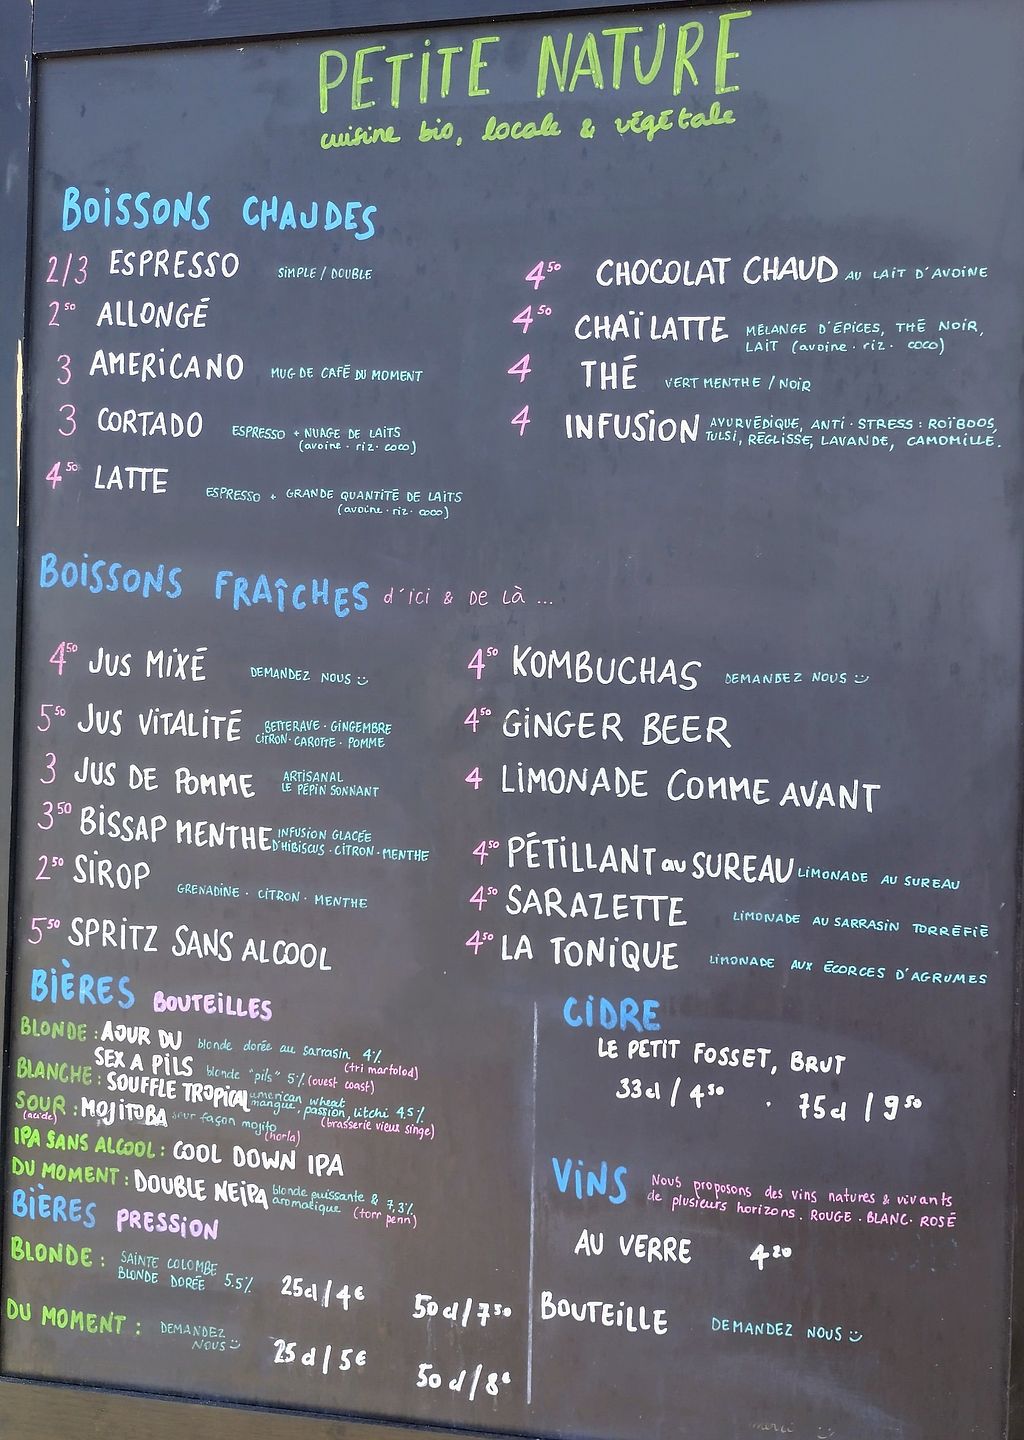 PETITE NATURE
cuisine bio, locale & végétale
BOISSONS CHAUDES
2/3 ESPRESSO SIMPLE / DOUBLE
2⁵⁰ ALLONGÉ
3 AMERICANO MUG DE CAFÉ DU MOMENT
3 CORTADO ESPRESSO + NUAGE DE LAITS
(avoine · riz · coco)
4⁵⁰ LATTE ESPRESSO + GRANDE QUANTITÉ DE LAITS
(avoine · riz · coco)
4⁵⁰ CHOCOLAT CHAUD AU LAIT D'AVOINE
4⁵⁰ CHAÏ LATTE MÉLANGE D'ÉPICES, THÉ NOIR,
LAIT (avoine · riz · coco)
4 THÉ VERT MENTHE / NOIR
4 INFUSION AYURVÉDIQUE, ANTI-STRESS : ROÏBOOS,
TULSI, RÉGLISSE, LAVANDE, CAMOMILLE.
BOISSONS FRAÎCHES d'ici & DE Là ...
4⁵⁰ JUS MIXÉ DEMANDEZ NOUS :)
5⁵⁰ JUS VITALITÉ BETTERAVE · GINGEMBRE
CITRON · CAROTTE · POMME
3 JUS DE POMME ARTISANAL
LE PÉPIN SONNANT
3⁵⁰ BISSAP MENTHE INFUSION GLACÉE
D'HIBISCUS · CITRON · MENTHE
2⁵⁰ SIROP GRENADINE · CITRON · MENTHE
5⁵⁰ SPRITZ SANS ALCOOL
4⁵⁰ KOMBUCHAS DEMANDEZ NOUS :)
4⁵⁰ GINGER BEER
4 LIMONADE COMME AVANT
4⁵⁰ PÉTILLANT au SUREAU LIMONADE AU SUREAU
4⁵⁰ SARAZETTE LIMONADE AU SARRASIN TORRÉFIÉ
4⁵⁰ LA TONIQUE LIMONADE AUX ÉCORCES D'AGRUMES
BIÈRES BOUTEILLES
BLONDE : AJUR DU blonde dorée au sarrasin 4%
(tri martolod)
SEX A PILS blonde "pils" 5% (ouest coast)
BLANCHE : SOUFFLE TROPICAL american wheat
mangue, passion, litchi 4,5%
(brasserie vieux singe)
SOUR : MOJITOBA sour façon mojito
(acide) (horla)
IPA SANS ALCOOL : COOL DOWN IPA
DU MOMENT : DOUBLE NEIPA blonde puissante & 7,3%
aromatique (torr penn)
BIÈRES PRESSION
BLONDE : SAINTE COLOMBE
BLONDE DORÉE 5.5% 25cl / 4€ 50cl / 7⁵⁰
DU MOMENT : DEMANDEZ
NOUS :) 25cl / 5€ 50cl / 8€
CIDRE
LE PETIT FOSSET, BRUT
33cl / 4⁵⁰ · 75cl / 9⁵⁰
VINS Nous proposons des vins natures & vivants
de plusieurs horizons. ROUGE · BLANC · ROSÉ
AU VERRE 4²⁰
BOUTEILLE DEMANDEZ NOUS :)
merci :)